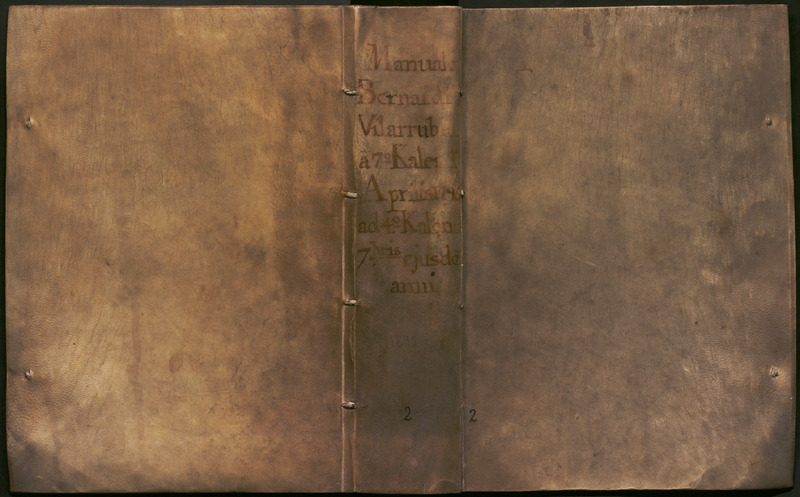 Manual
Bernardi
Vilarrub
â 7º Kalen
Aprilis
ad 4º Kalen
7.bris ejusde
anni
2
2